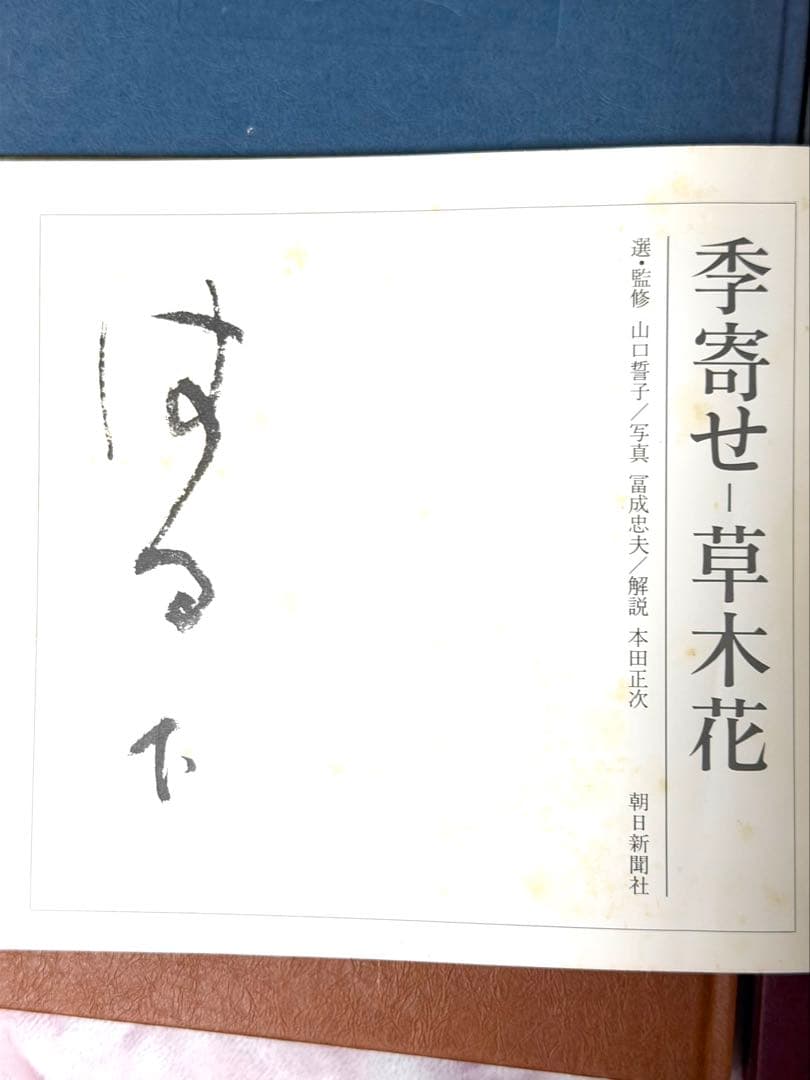 季寄せ−草木花
選・監修 山口誓子／写真 冨成忠夫／解説 本田正次 朝日新聞社
はる 下